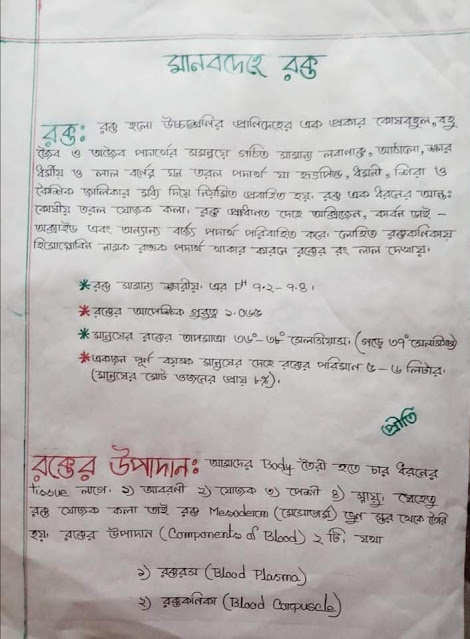 মানবদেহে রক্ত
রক্ত: রক্ত হলো উচ্চশ্রেণির প্রাণিদেহের এক প্রকার কোষবহুল, বহু
জৈব ও অজৈব পদার্থের সমন্বয়ে গঠিত সামান্য লবণাক্ত, আঠালো, ক্ষার
ধর্মীয় ও লাল বর্ণের ঘন তরল পদার্থ যা হৃৎপিন্ড, ধমনী, শিরা ও
কৈশিক জালিকার মধ্য দিয়ে নিয়মিত প্রবাহিত হয়। রক্ত এক ধরনের আন্তঃ
কোষীয় তরল যোজক কলা। রক্ত প্রধানত দেহে অক্সিজেন, কার্বন ডাই -
অক্সাইড এবং অন্যান্য বর্জ্য পদার্থ পরিবাহিত করে। লোহিত রক্তকণিকায়
হিমোগ্লোবিন নামক রঞ্জক পদার্থ থাকার কারনে রক্তের রং লাল দেখায়।
* রক্ত সামান্য ক্ষারীয়। এর pH ৭.২ - ৭.৪।
* রক্তের আপেক্ষিক গুরুত্ব ১.০৬৫
* মানুষের রক্তের তাপমাত্রা ৩৬° - ৩৮° সেলসিয়াস। (গড়ে ৩৭° সেলসিয়াস)
* একজন পূর্ন বয়স্ক মানুষের দেহে রক্তের পরিমান ৫ - ৬ লিটার।
(মানুষের মোট ওজনের প্রায় ৮%)।
প্রীতি
রক্তের উপাদান: আমাদের Body তৈরী হতে চার ধরনের
tissue লাগে। ১) আবরণী ২) যোজক ৩) পেশী ৪) স্নায়ু। যেহেতু
রক্ত যোজক কলা তাই রক্ত Mesoderm (মেসোডার্ম) ভ্রূণ স্তর থেকে তৈরি
হয়। রক্তের উপাদান (Components of Blood) ২ টি। যথা
১) রক্তরস (Blood Plasma)
২) রক্তকনিকা (Blood Corpuscle)